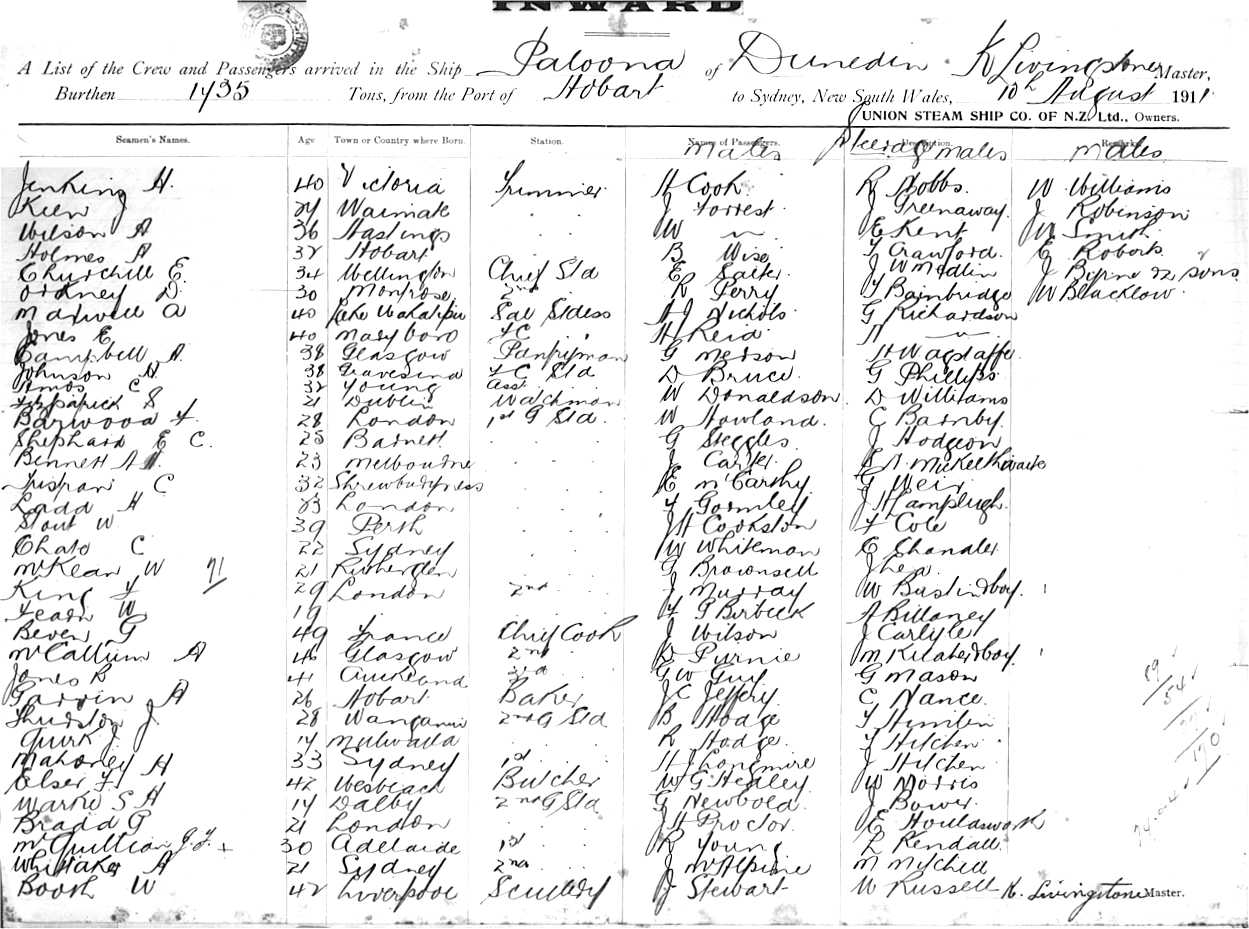 INWARD
A List of the Crew and Passengers arrived in the Ship Paloona of Dunedin K Livingstone Master,
Burthen 1435 Tons, from the Port of Hobart to Sydney, New South Wales, 10th August 1911
UNION STEAM SHIP CO. OF N.Z. Ltd., Owners.
Seamen's Names. Age Town or Country where Born. Station. Names of Passengers. Description. Remarks
Males Steerage males Males
Jenkins H. 40 Victoria Trimmer H Cook R Hobbs. W Williams
Kien J Waimate . . J Forrest. J Greenaway. J Robinson
Wilson A 36 Hastings . . W " E Kent W Smith
Holmes A 32 Hobart . . B Wise T Crawford. E Roberts
Churchill E. 34 Wellington Chief Std E Salter. J W Medlin J Byrne & 2 sons
Orkney D. 30 Monrose 2nd R Perry T Bainbridge W Blacklow.
Maxwell A 40 Lake Wakatipu Sal Stdess A J Nichols G Richardson
Jones E 40 Maryboro F C H Reid H "
Campbell A. 38 Glasgow Pantryman G Merson H Wagstaffe
Johnson H 38 Gravesend F C Std D Bruce. G Phillips
Amos C 32 Young Asst W Donaldson. D Williams
Fitzpatrick S 21 Dublin Watchman W Howland. C Barnby.
Barwood F. 28 London 1st G Std. G Steggles J Hodgson
Shephard E C. 25 Barnett . . J Carter
Bennett A H. 23 Melbourne . . E McCarthy G Weir
Tristram C 32 Shrewburyness . . F Gormley J H Lamplugh.
Ladd H 33 London . . J H Cookston F Cole
Stout W 39 Perth . . W Whiteman C Chandler
Chato C 22 Sydney . . G Brownsell J Lea
McKean W 71 21 Rutherglen . . J Murray W Bustin & boy.
King F 29 London 2nd F G Birbeck A Billaney
W 19 . . J Wilson J Carlyle
Beven G 49 France Chief Cook D Purnie
McCallum A 46 Glasgow 2nd G W Guy G Mason
Jones R 41 Auckland 3rd J C Jeffery C Nance.
Garvin A 26 Hobart Baker B Hodge
Thurston J 28 Wanganui 2nd G Std R Hodge. T Hitchen
Quirk J 14 Mulwalla . . H J Longmire J Hitchen
Mahoney H 33 Sydney 1st W G Healey W Morris
Elser F 42 Wesbeach Butcher G Newbold J Bower.
S H 14 Dalby 2nd G Std J H Proctor. E Houldsworth
Bradd G 21 London . . R Young L Kendall
30 Adelaide 1st J McAlpine
Whittaker A 21 Sydney 2nd J Stewart W Russell
Booth W 42 Liverpool Scullery K. Livingstone Master.
89
54
170